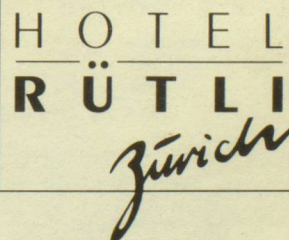 HOTEL
RÜTLI
Zürich